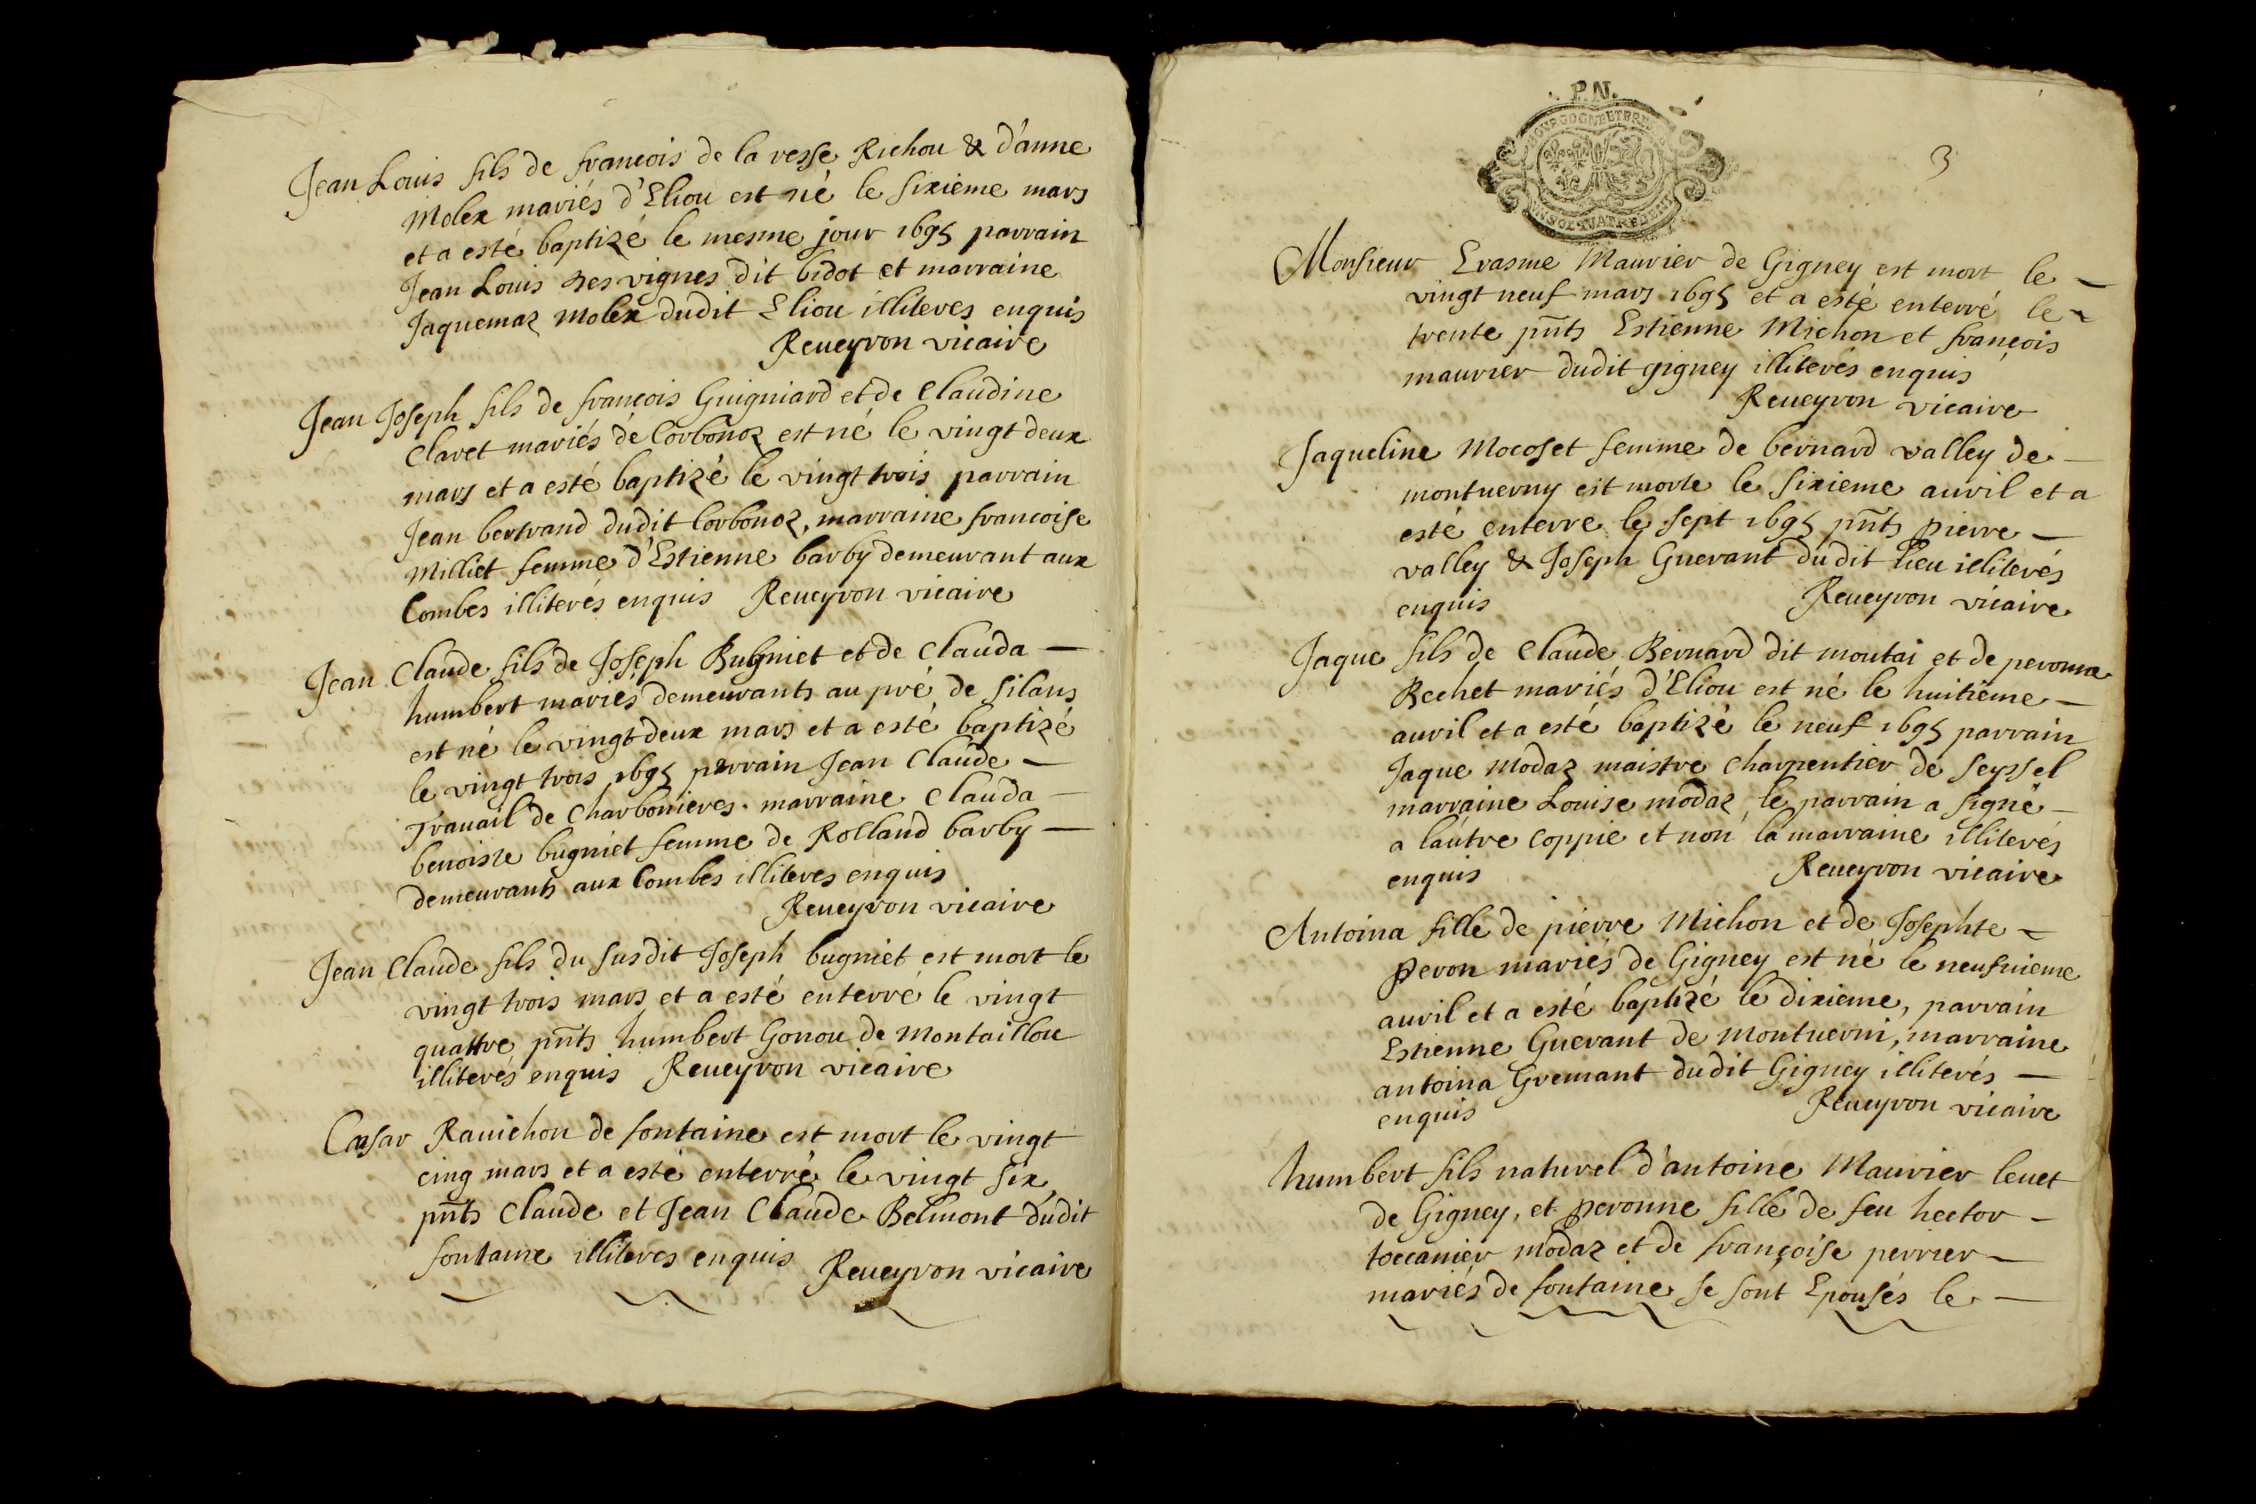 Jean Louis fils de francois de la vesse Richou & d'anne
Molex mariés d'Eliou est né le sixieme mars
et a esté baptizé le mesme jour 1695 parrain
Jean Louis des vignes dit bidot et marraine
Jaquemaz Molex dudit Eliou illiteres enquis
Reueyron vicaire
Jean Joseph fils de francois Guigniard et de Claudine
Claret mariés de Corbonoz est né le vingt deux
mars et a esté baptizé le vingt trois parrain
Jean bertrand dudit Corbonoz, marraine francoise
Milliet femme d'Estienne barby demeurant aux
Combes illiterés enquis Reueyron vicaire
Jean Claude fils de Joseph Bugniet et de Clauda —
humbert mariés demeurants au pré de silans
est né le vingt deux mars et a esté baptizé
le vingt trois 1695 parrain Jean Claude —
Trauail de Charbonieres. marraine Clauda —
benoiste bugniet femme de Rolland barby —
demeurants aux Combes illiteres enquis
Reueyron vicaire
Jean Claude fils du susdit Joseph bugniet est mort le
vingt trois mars et a esté enterré le vingt
quattre pnts humbert Gonou de Montaillou
illiterés enquis Reueyron vicaire
Cæsar Rauichon de fontaine est mort le vingt
cinq mars et a esté enterré le vingt six
pnts Claude et Jean Claude Belmont dudit
fontaine illiteres enquis Reueyron vicaire
P.N.
3
Monsieur Erasme Maurier de Gigney est mort le —
vingt neuf mars 1695 et a esté enterré le ~
trente pnts Estienne Michon et francois
maurier dudit gigney illiterés enquis
Reueyron vicaire
Jaqueline Mocoset femme de bernard valley de —
montuerny est morte le sixieme auril et a
esté enterre le sept 1695 pnts pierre —
valley & Joseph Guerant dudit lieu illiterés
enquis Reueyron vicaire
Jaque fils de Claude Bernard dit moutai et de peronne
Bechet mariés d'Eliou est né le huitieme —
auril et a esté baptizé le neuf 1695 parrain
Jaque Modaz maistre charpentier de seyssel
marraine Louise modaz, le parrain a signé —
a lautre coppie et non la marraine illiterés
enquis Reueyron vicaire
Antoina fille de pierre Michon et de Josephte ~
peron mariés de Gigney est né le neufuieme
auril et a esté baptizé le dixieme, parrain
Estienne Guerant de montuerni, marraine
antoina Gremant dudit Gigney illiterés —
enquis Reueyron vicaire
humbert fils naturel d'antoine Maurier leuet
de Gigney, et peronne fille de feu hector —
toccanier modaz et de françoise perrier —
mariés de fontaine se sont Epousés le —